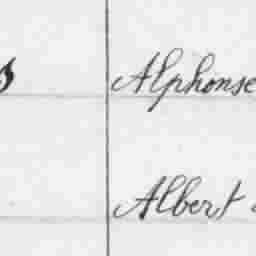 Alphonse
Albert